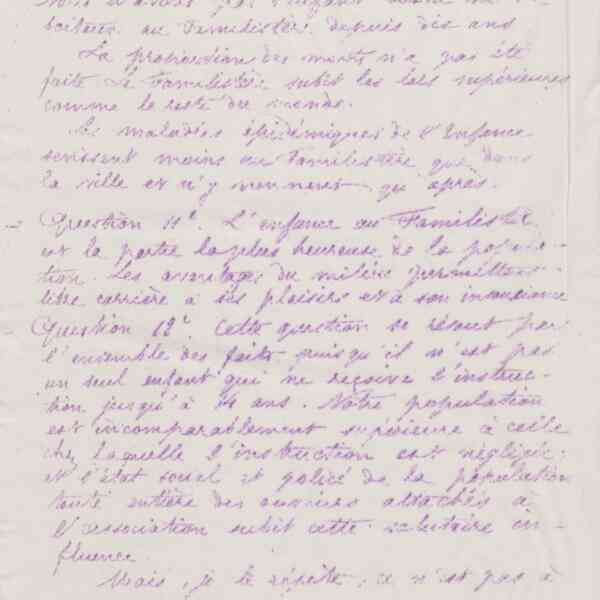 au Familistère depuis dix ans
La proportion des morts n'a pas été
faite. Le Familistère subit les lois supérieures
comme le reste du monde.
Les maladies épidémiques de l'Enfance
sévissent moins au Familistère que dans
la ville et n'y viennent qu'après.
Question 11e. L'enfance au Familistère
est la partie la plus heureuse de la popula-
tion. Les avantages du milieu permettent
libre carrière à ses plaisirs et à son insouciance
Question 12e. Cette question se résout par
l'ensemble des faits puisqu'il n'est pas
un seul enfant qui ne reçoive l'instruc-
tion jusqu'à 14 ans. Notre population
est incomparablement supérieure à celle
chez laquelle l'instruction est négligée;
et l'état social et policé de la population
toute entière des ouvriers attachés à
l'association subit cette salutaire in-
fluence.
Mais, je le répète, ce n'est pas à